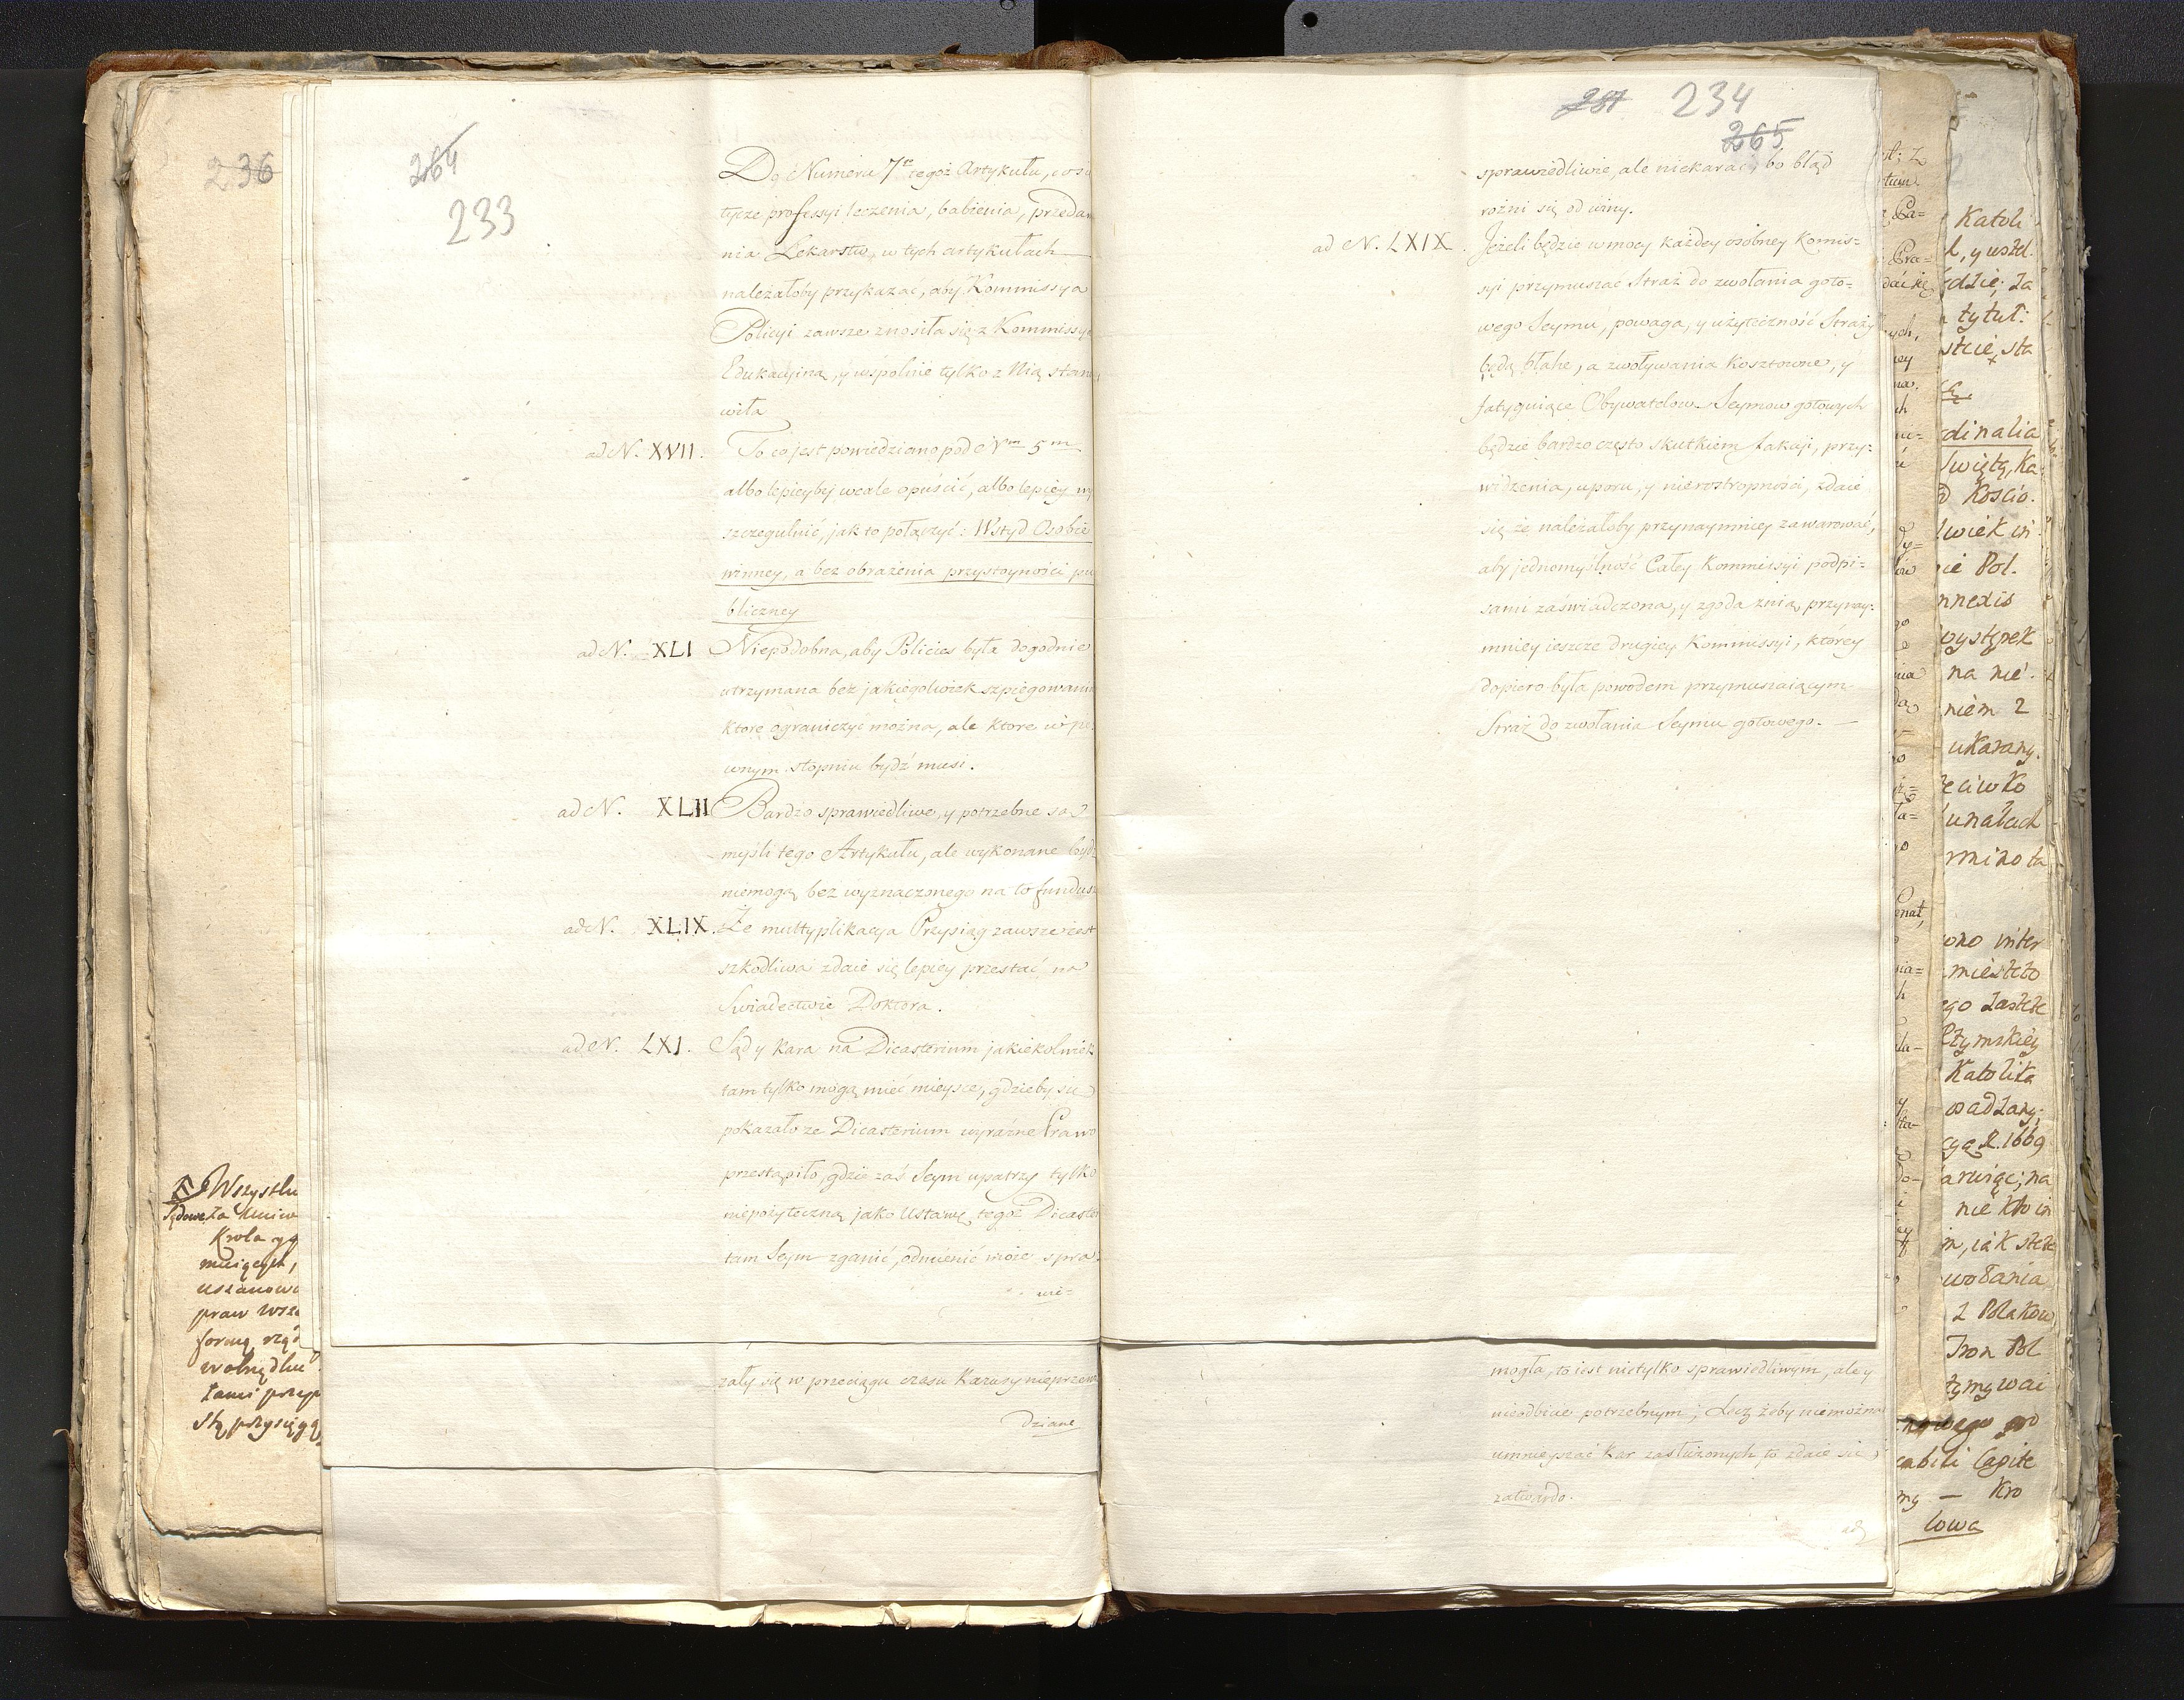 236
264
233
Do Numeru 7º tegoż Artykułu, co się
tycze professyi leczenia, babienia, przeda
nia Lekarstw, w tych artykułach
należałoby przykazać, aby Kommissya
Policyi zawsze znosiła się z Kommissyą
Edukacyiną, y wspolnie tylko z Nią stano
wiła
ad N. XVII. To co jest powiedziano pod Nm 5m
albo lepiey by wcale opuścić, albo lepiey wy
szczegulnić, jak to połączyć: Wstyd Osobie
winney, a bez obrażenia przystoyności pu
bliczney
ad N. XLI Niepodobna, aby Policies była dogodnie
utrzymana bez jakiegolwiek szpiegowania
ktore ograniczyć można, ale ktore w pe
wnym stopniu bydź musi.
ad N. XLII Bardzo sprawiedliwe, y potrzebne są
myśli tego Artykułu, ale wykonane bydź
niemogą bez wyznaczonego na to fundusz
ad N. XLIX. Że multyplikacya Przysiąg zawsze iest
szkodliwa zdaie się lepiey przestać na
Swiadectwie Doktora.
ad N. LXI. Sąd y kara na Dicasterium jakiekolwiek
tam tylko mogą mieć mieysce, gdzieby się
pokazało ze Dicasterium wyraźne Prawo
przestąpiło, gdzie zaś Seym upatrzy tylko
niepożyteczną jako Ustawę tegoż Dicaster
tam Seym zganić, odmienić może spra=
wi=
zały się w przeciągu czasu Kazusy nieprzewi
dziane
Wszystk
Krola
muiących,
uszanowa
praw wsze
formą rzą
Stą przysięgą
234
265
sprawiedliwie, ale niekarać, bo błąd
rożni się od winy.
ad N. LXIX. Jeżeli będzie w mocy każdey osobney Komis=
syi przymuszać Straż do zwołania goto=
wego Seymu, powaga, y użyteczność Straży
będą błahe, a zwoływania kosztowne, y
fatyguiące Obywatelow Seymow gotowych
będzie bardzo często skutkiem fakcji, przy=
widzenia, uporu, y nierostropności, zdaie
się że należałoby przynaymniey zawarować,
aby jednomyślność Całey Kommissyi podpi=
sami zaświadczona, y zgoda znią przynay=
mniey ieszcze drugiey Kommissyi, ktorey
dopiero była powodem przymuszaiącym
Straż do zwołania Seymu gotowego. —
mogła, to iest nietylko sprawiedliwym, ale y
nieodbicie potrzebnym; Lecz żeby niemożna
umnieyszać kar zasłużonych, to zdaie się
zatwardo.
ad
Katoli
tytuł:
dinalia
Swiętą, Ka
Kościo.
lwiek in
Pol.
nnexis
występek
na nie
niem 2
ukarany.
eciwko
unałach
ono inter
miesteto
Rzymskiey
Katolika
wadzany:
R. 1669
nie kto in
iak
wołania
z Polakow
Tron Pol
abili Capite
— Kro
lowa